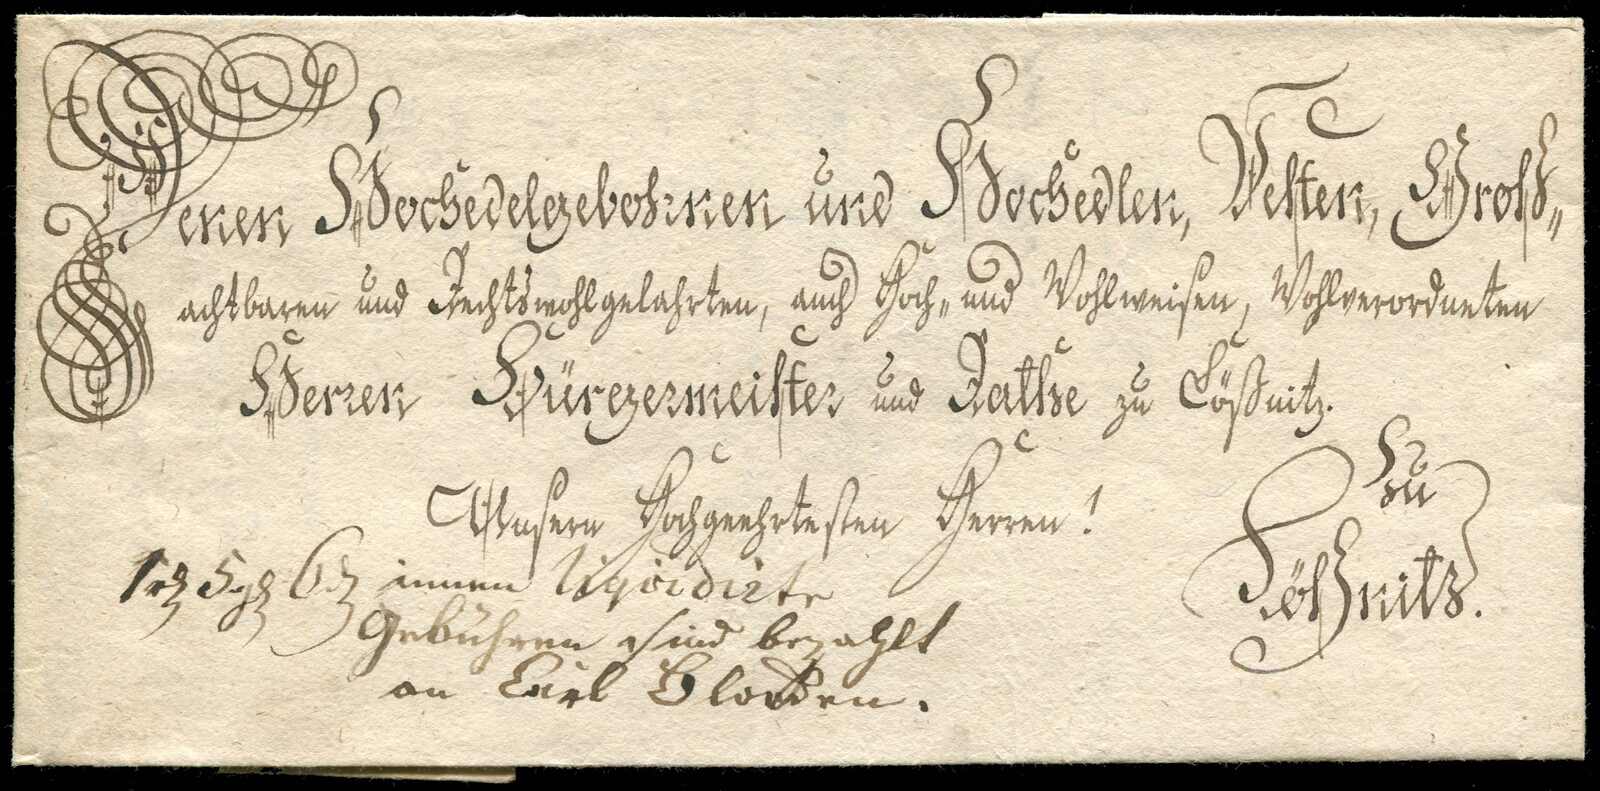 Denen Hochedelgebohrnen und Hochedlen, Vesten, Groß-
achtbaren und Rechtswohlgelahrten, auch Hoch- und Wohlweisen, Wohlverordneten
Herren Bürgermeister und Rathe zu Lößnitz.
Unsern Hochgeehrtesten Herren!
zu
Lößnitz.
innen liquidirte
Gebühren sind bezahlt
an Carl